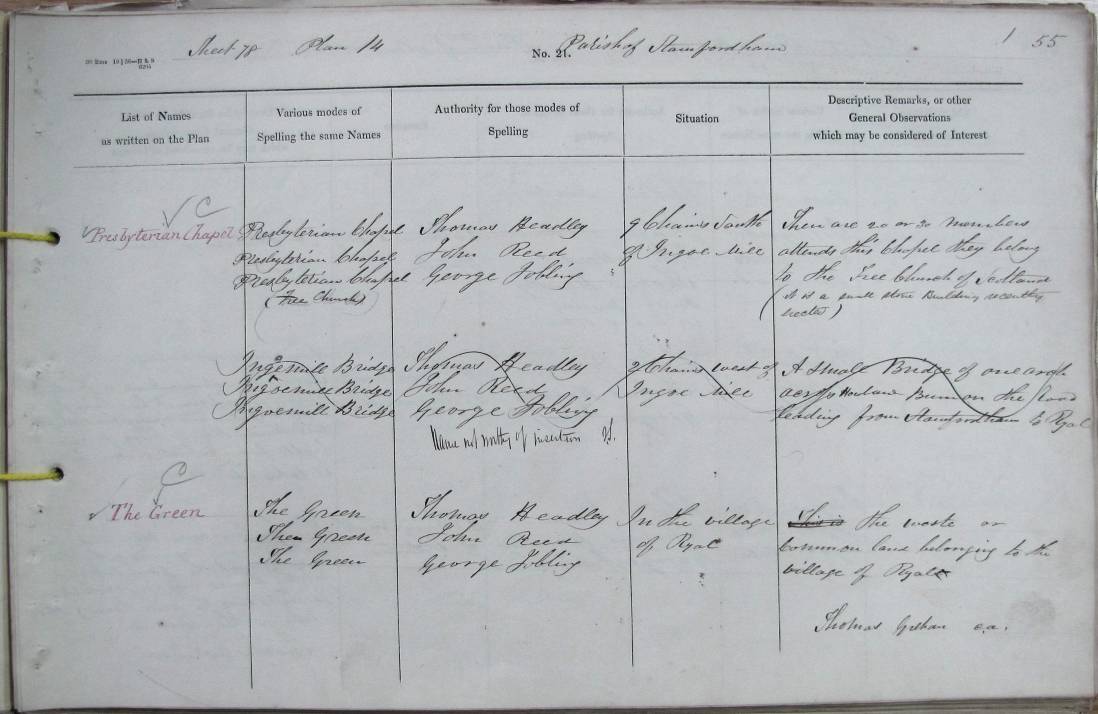 Sheet 78 Plan 14 No. 21. Parish of Stamfordham 1 55
List of Names
as written on the Plan
Various modes of
Spelling the same Names
Authority for those modes of
Spelling
Situation
Descriptive Remarks, or other
General Observations
which may be considered of Interest
C
Presbyterian Chapel
Presbyterian Chapel
Presbyterian Chapel
Presbyterian Chapel
(Free Church)
Thomas Headley
John Reed
George Jobling
9 Chains South
of Ingoe Mill
There are 20 or 30 members
attends this Chapel they belong
to the Free Church of Scotland
(it is a small stone Building recently
erected)
Ingoemill Bridge
Ingoemill Bridge
Ingoemill Bridge
Thomas Headley
John Reed
George Jobling
Name not worthy of insertion
9 Chains west of
Ingoe Mill
A small Bridge of one arch
across Burn on the Road
leading from Stamfordham to Ryal
C
The Green
The Green
The Green
The Green
Thomas Headley
John Reed
George Jobling
In the village
of Ryal
This is the waste or
Common land belonging to the
village of Ryal
Thomas c.a.